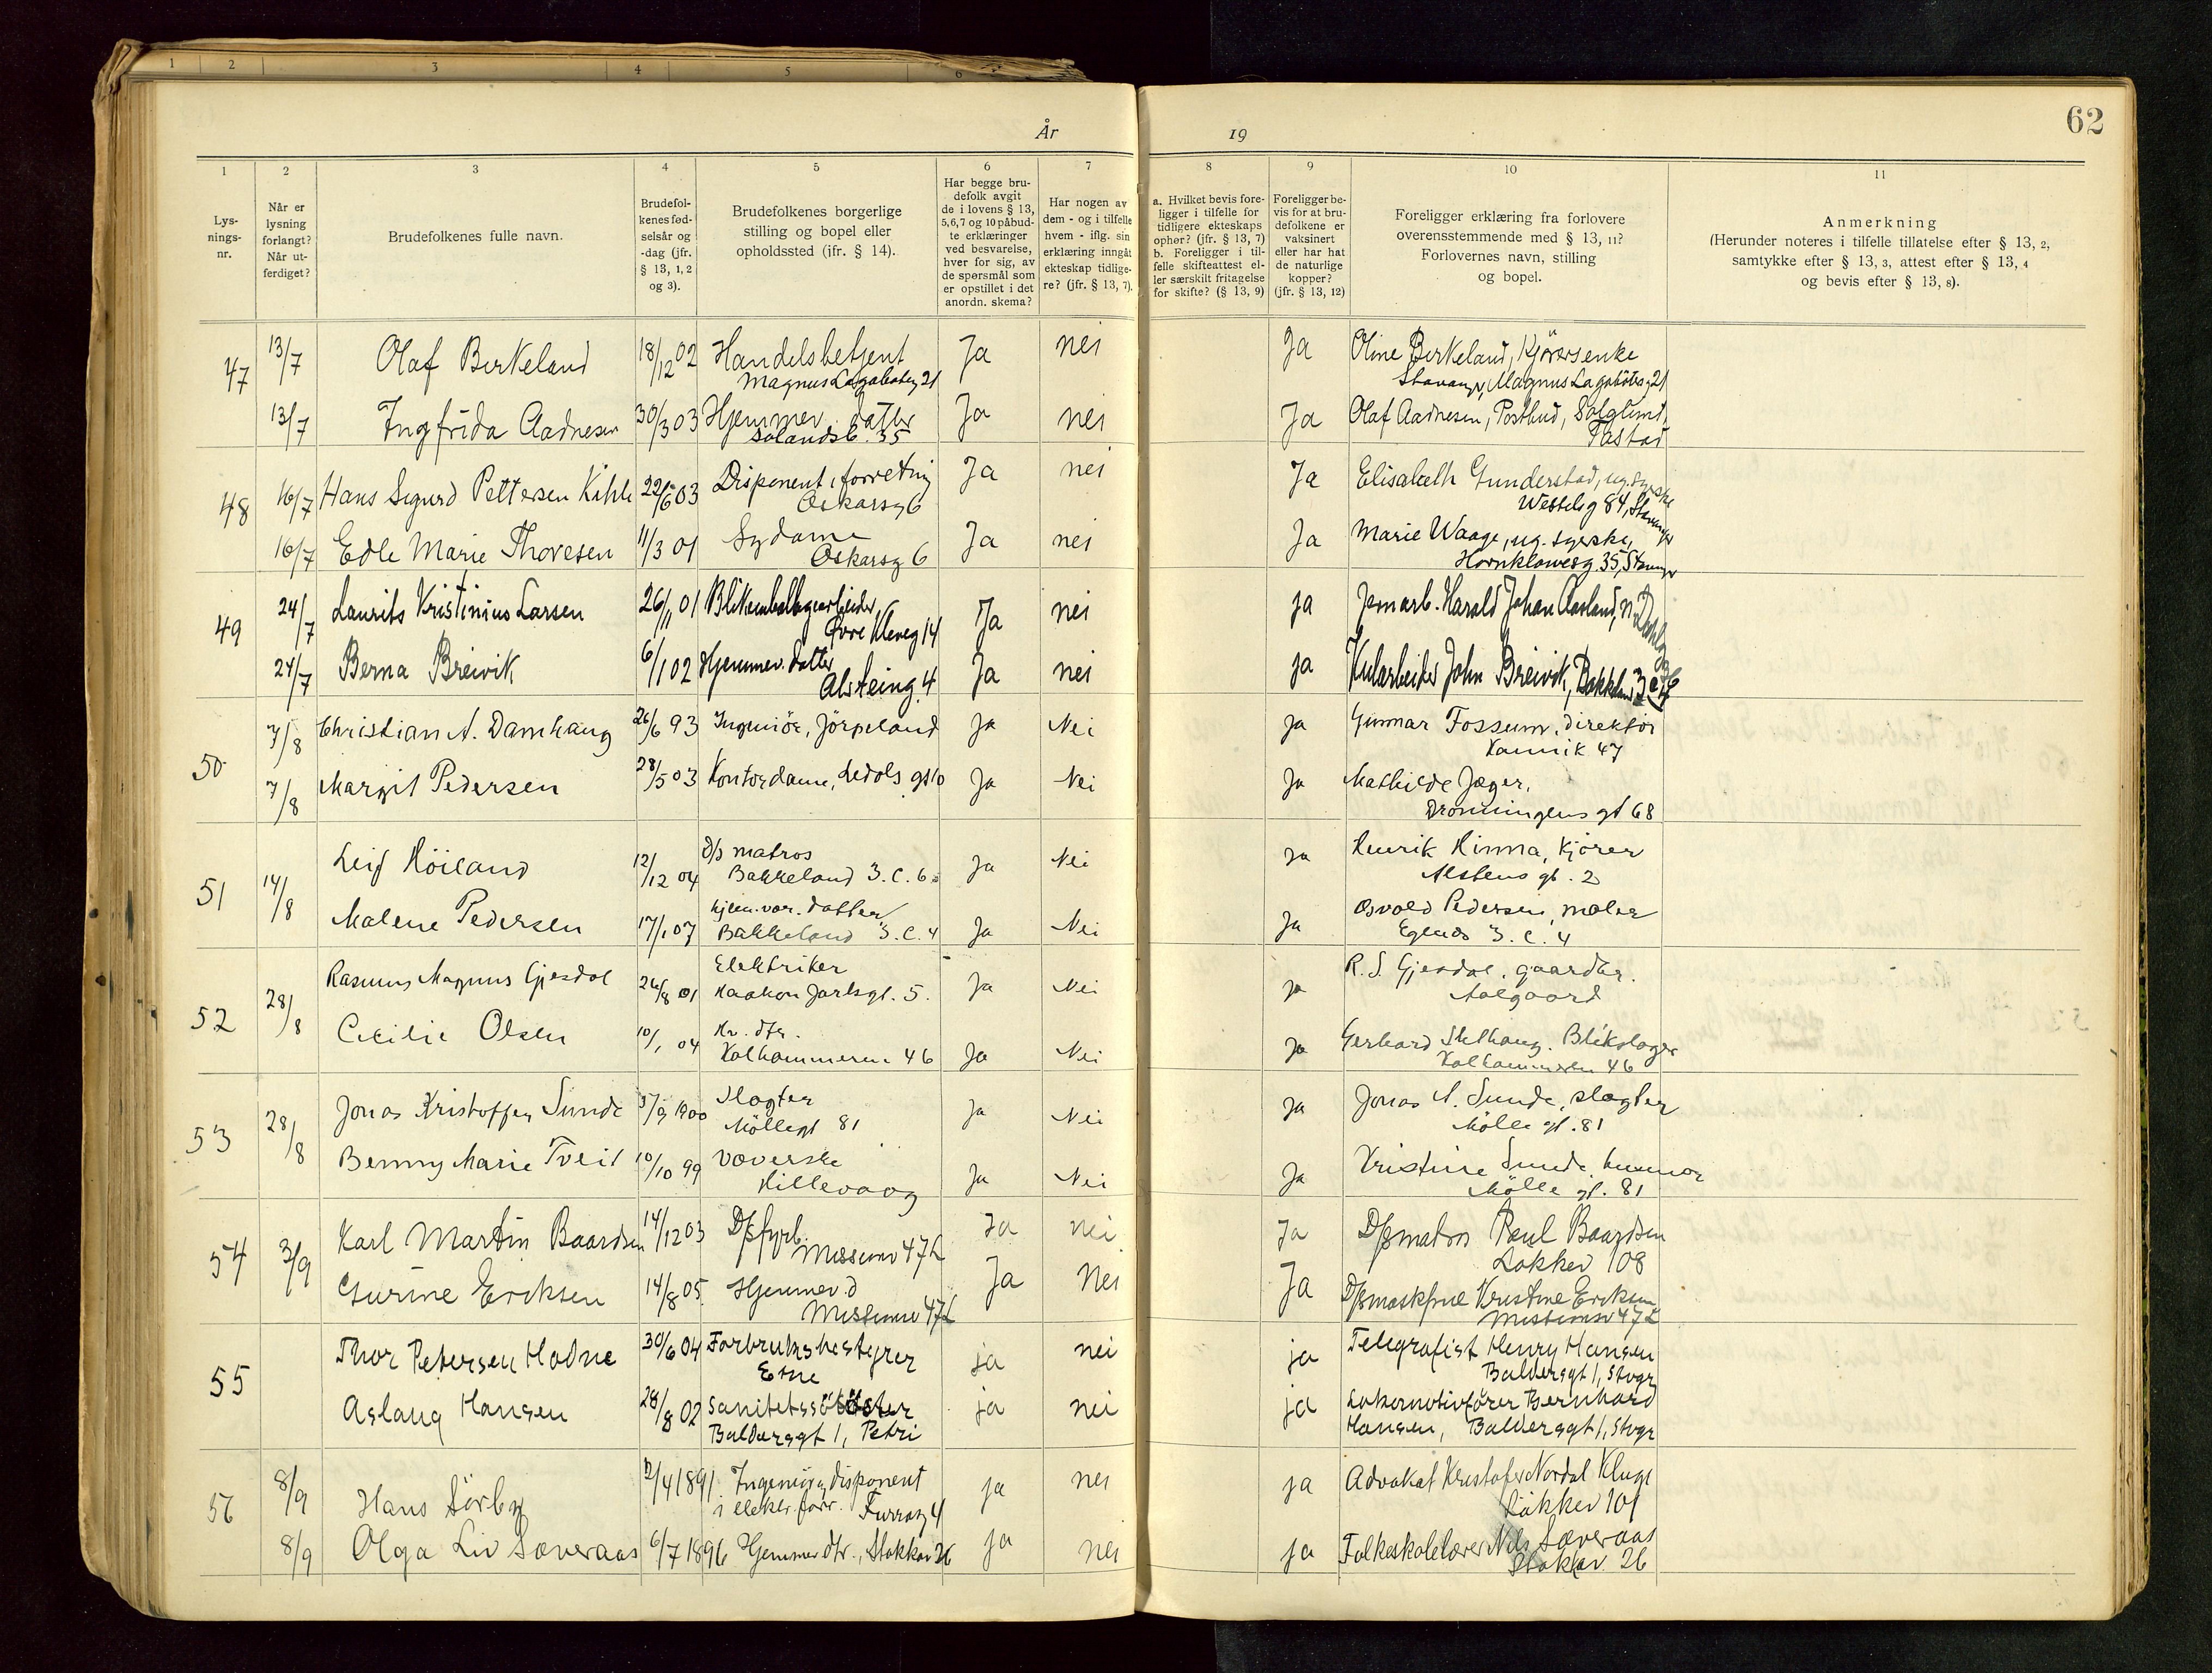 1 2 3 4 5 6
År 19
62
1 2 3 4 5 6 7 8 9 10 11
Lys-
nings-
nr.
Når er
lysning
forlangt?
Når ut-
ferdiget?
Brudefolkenes fulle navn.
Brudefol-
kenes fød-
selsår og
-dag (jfr.
§ 13, 1, 2
og 3).
Brudefolkenes borgerlige
stilling og bopel eller
opholdssted (jfr. § 14).
Har begge bru-
defolk avgit
de i lovens § 13,
5,6,7 og 10 påbud-
te erklæringer
ved besvarelse,
hver for sig, av
de spørsmål som
er opstillet i det
anordn. skema?
Har nogen av
dem - og i tilfelle
hvem - iflg. sin
erklæring inngåt
ekteskap tidlige-
re? (jfr. § 13, 7).
a. Hvilket bevis fore-
ligger i tilfelle for
tidligere ekteskaps
ophør? (jfr. § 13, 7)
b. Foreligger i til-
felle skifteattest el-
ler særskilt fritagelse
for skifte? (§ 13, 9)
Foreligger be-
vis for at bru-
defolkene er
vaksinert
eller har hat
de naturlige
kopper?
(jfr. § 13, 12)
Foreligger erklæring fra forlovere
overensstemmende med § 13, 11?
Forlovernes navn, stilling
og bopel.
Anmerkning
(Herunder noteres i tilfelle tillatelse efter § 13, 2,
samtykke efter § 13, 3, attest efter § 13, 4
og bevis efter § 13, 8).
47 13/7 Olaf Birkeland 18/12 02 Handelsbetjent Ja nei Ja Oline Birkeland, Kjörersenke
Magnus Lagabøtesg 21 Stavanger, Magnus Lagabötesg 21
13/7 Ingfrida Aadnesen 30/3 03 Hjemmev. datter Ja nei Ja Olaf Aadnesen, Postbud, Solglimt,
35 Tastad
48 16/7 Hans Sigurd Pettersen Kihle 22/6 03 Disponent i forretning Ja nei Ja Elisabeth Gunderstad, ug. syerske
Oskarsg 6 84, Stavanger
16/7 Edle Marie Thoresen 11/3 01 Sydame Ja nei Ja Marie Waage, ug. syerske,
Oskarsg 6 Hornklovesg. 35, Stavanger
49 24/7 Laurits Kristinius Larsen 26/1 01 Blikemballagearbeider, Ja nei ja Harald Johan Aasland,
Øvre Kleveg 14
24/7 Berna Breivik 6/1 02 Hjemmev. datter Ja nei ja John Breivik,
Alsteinsg. 4
50 7/8 Christian A. Damhaug 26/6 93 Ingeniör, Jörpeland Ja Nei Ja Gunnar Fossum, direktör
Kannik 47
7/8 Margit Pedersen 28/5 03 Kontordame, Ledols gt 10 Ja Nei Ja Mathilde Jæger,
Dronningens gt 68
51 14/8 Leif Höiland 12/12 04 D/s matros Ja Nei Ja Henrik Hinna, Kjörer
Bakkeland 3. C. 6 Alsteins gt. 2
Malene Pedersen 17/1 07 hjem.vær. datter Ja Nei Ja Osvald Pedersen, maler
Bakkeland 3. C. 4 Egenes 3. C. 4
52 28/8 Rasmus Magnus Gjesdal 26/8 01 Elektriker Ja Nei Ja R. S. Gjesdal, gaardbr.
Haakon Jarlsgt. 5. Aalgaard
Cecilie Olsen 10/1 04 Hv. dtr. Ja Nei Ja Gerhard Skthaug. Blikslager
Kalhammeren 46 Kalhammeren 46
53 28/8 Jonas Kristoffer Sunde /9 1900 Slagter Ja Nei Ja Jonas A. Sunde, slagter
Möllegt 81 Mölle gt. 81
Benny Marie Tveit 10/10 99 Væverske Ja Nei Ja Kristine Sunde husmor
Hillevaag Mölle gt. 81
54 3/9 Karl Martin Baardsen 14/12 03 D/sfyrb. Ja nei Ja D/smatros Paul Baardsen
Misionsv 47 L Lökkev 108
Gurine Eriksen 14/8 05. Hjemmev. d Ja Nei Ja Kristine Eriksen
Misionsv 47 L Misionsv 47 L
55 Thor Petersen Hodne 30/6 04 Forbruksbestyrer ja nei ja Telegrafist Henry Hansen
Etne Baldersgt 1, Stvgr
Aslaug Hansen 28/8 02 Sanitetssöster ja nei ja Lokomotivförer Bernhard
Baldersgt 1, Petri Hansen, Baldersgt 1, Stvgr
56 8/9 Hans Sörby 2/4 1891. Ingeniör, disponent ja nei ja Advokat Kristofer Nordal Kluge
i elektr. forr. Furrasg 4 Lökkev 101
8/9 Olga Liv Sæveraas 6/7 1896 Hjemmev dtr., Stokkav 26 ja nei ja Folkeskolelærer Nils Sæveraas
Stokkav. 26